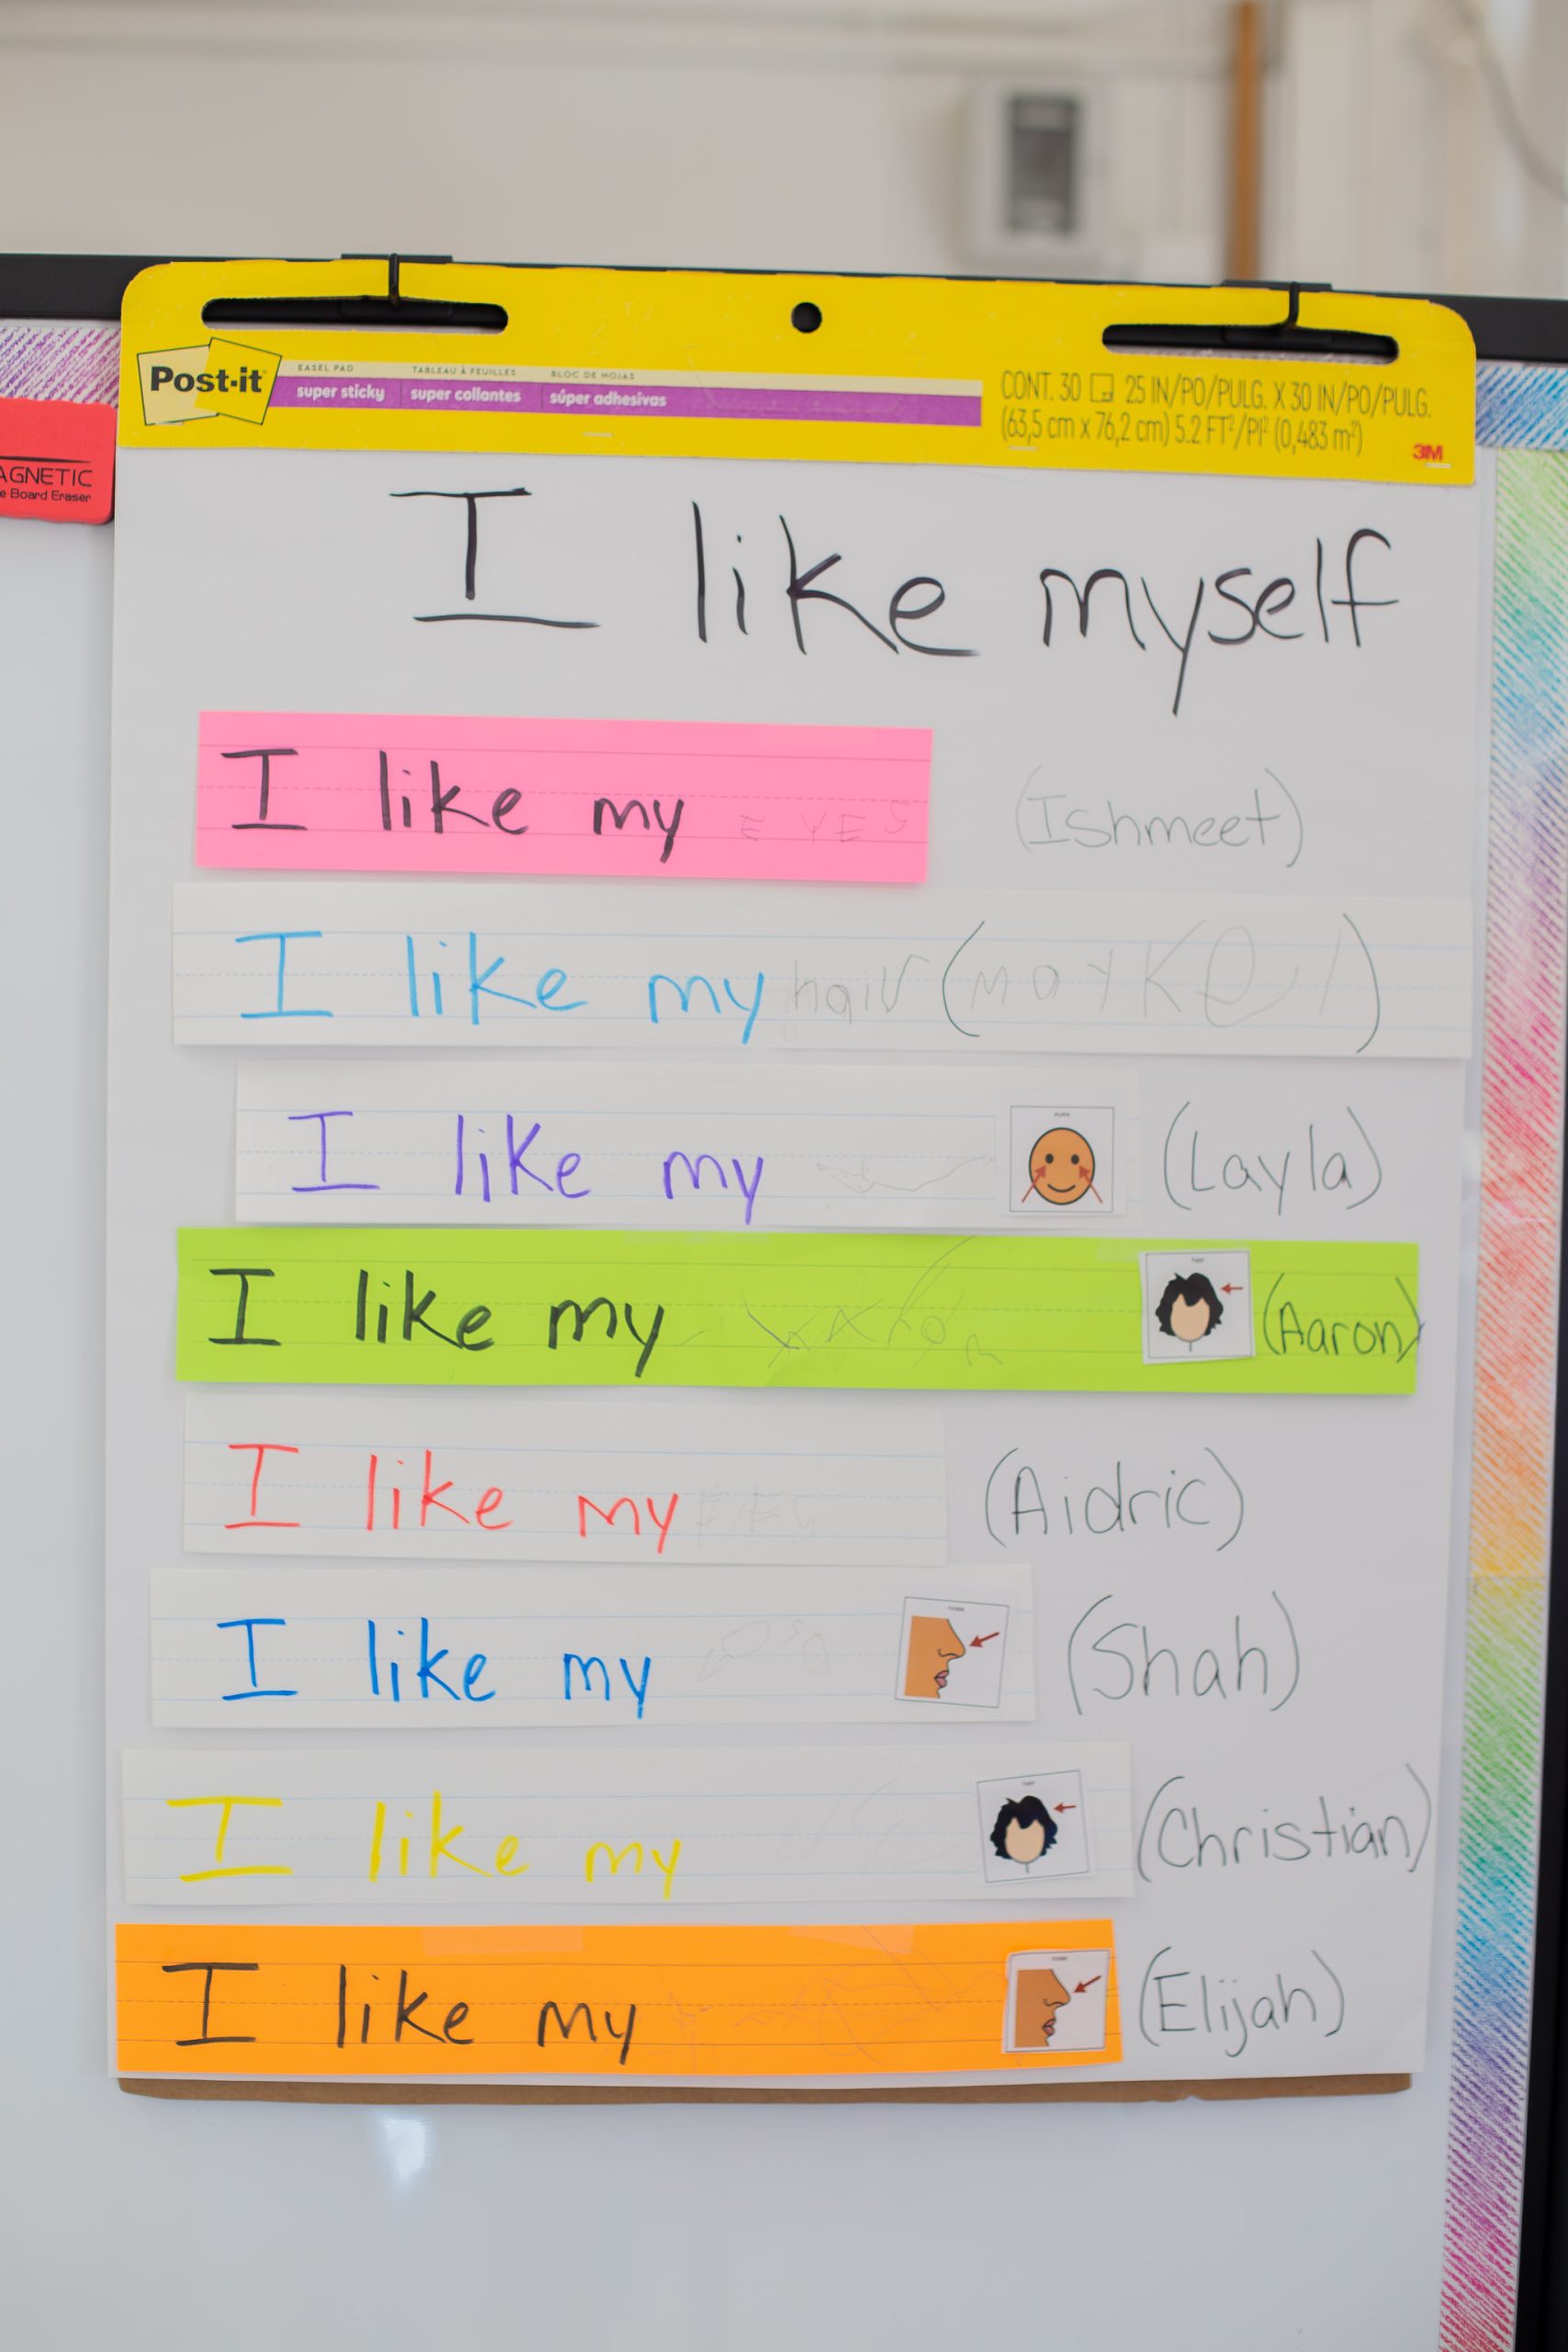 Post-it
EASEL PAD TABLEAU À FEUILLES BLOC DE HOJAS
super sticky super collantes súper adhesivas
CONT. 30 25 IN/PO/PULG. X 30 IN/PO/PULG.
(63,5 cm x 76,2 cm) 5.2 FT²/PI² (0,483 m²)
3M
AGNETIC
e Board Eraser
I like myself
I like my EYES (Ishmeet)
I like my hair
I like my eyes (Layla)
I like my hair (Aaron)
I like my (Aidric)
I like my nose (Shah)
I like my hair (Christian)
I like my nose (Elijah)